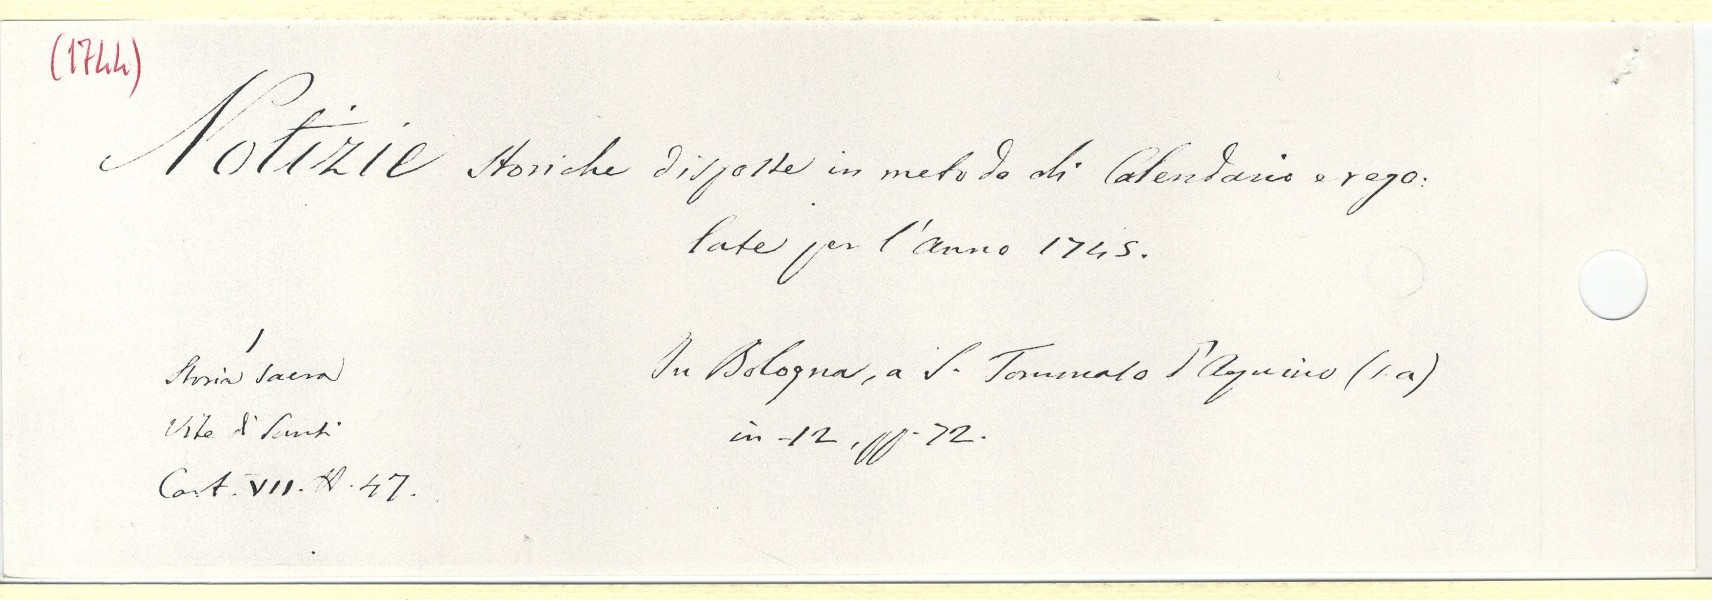 (1744)
Notizie storiche disposte in metodo di Calendario e rego:
late per l'anno 1745.
In Bologna, a S. Tommaso d'Aquino (s.a)
in-12, pp. 72.
1
Storia sacra
Vite di Santi
Cart. VII. N. 47.